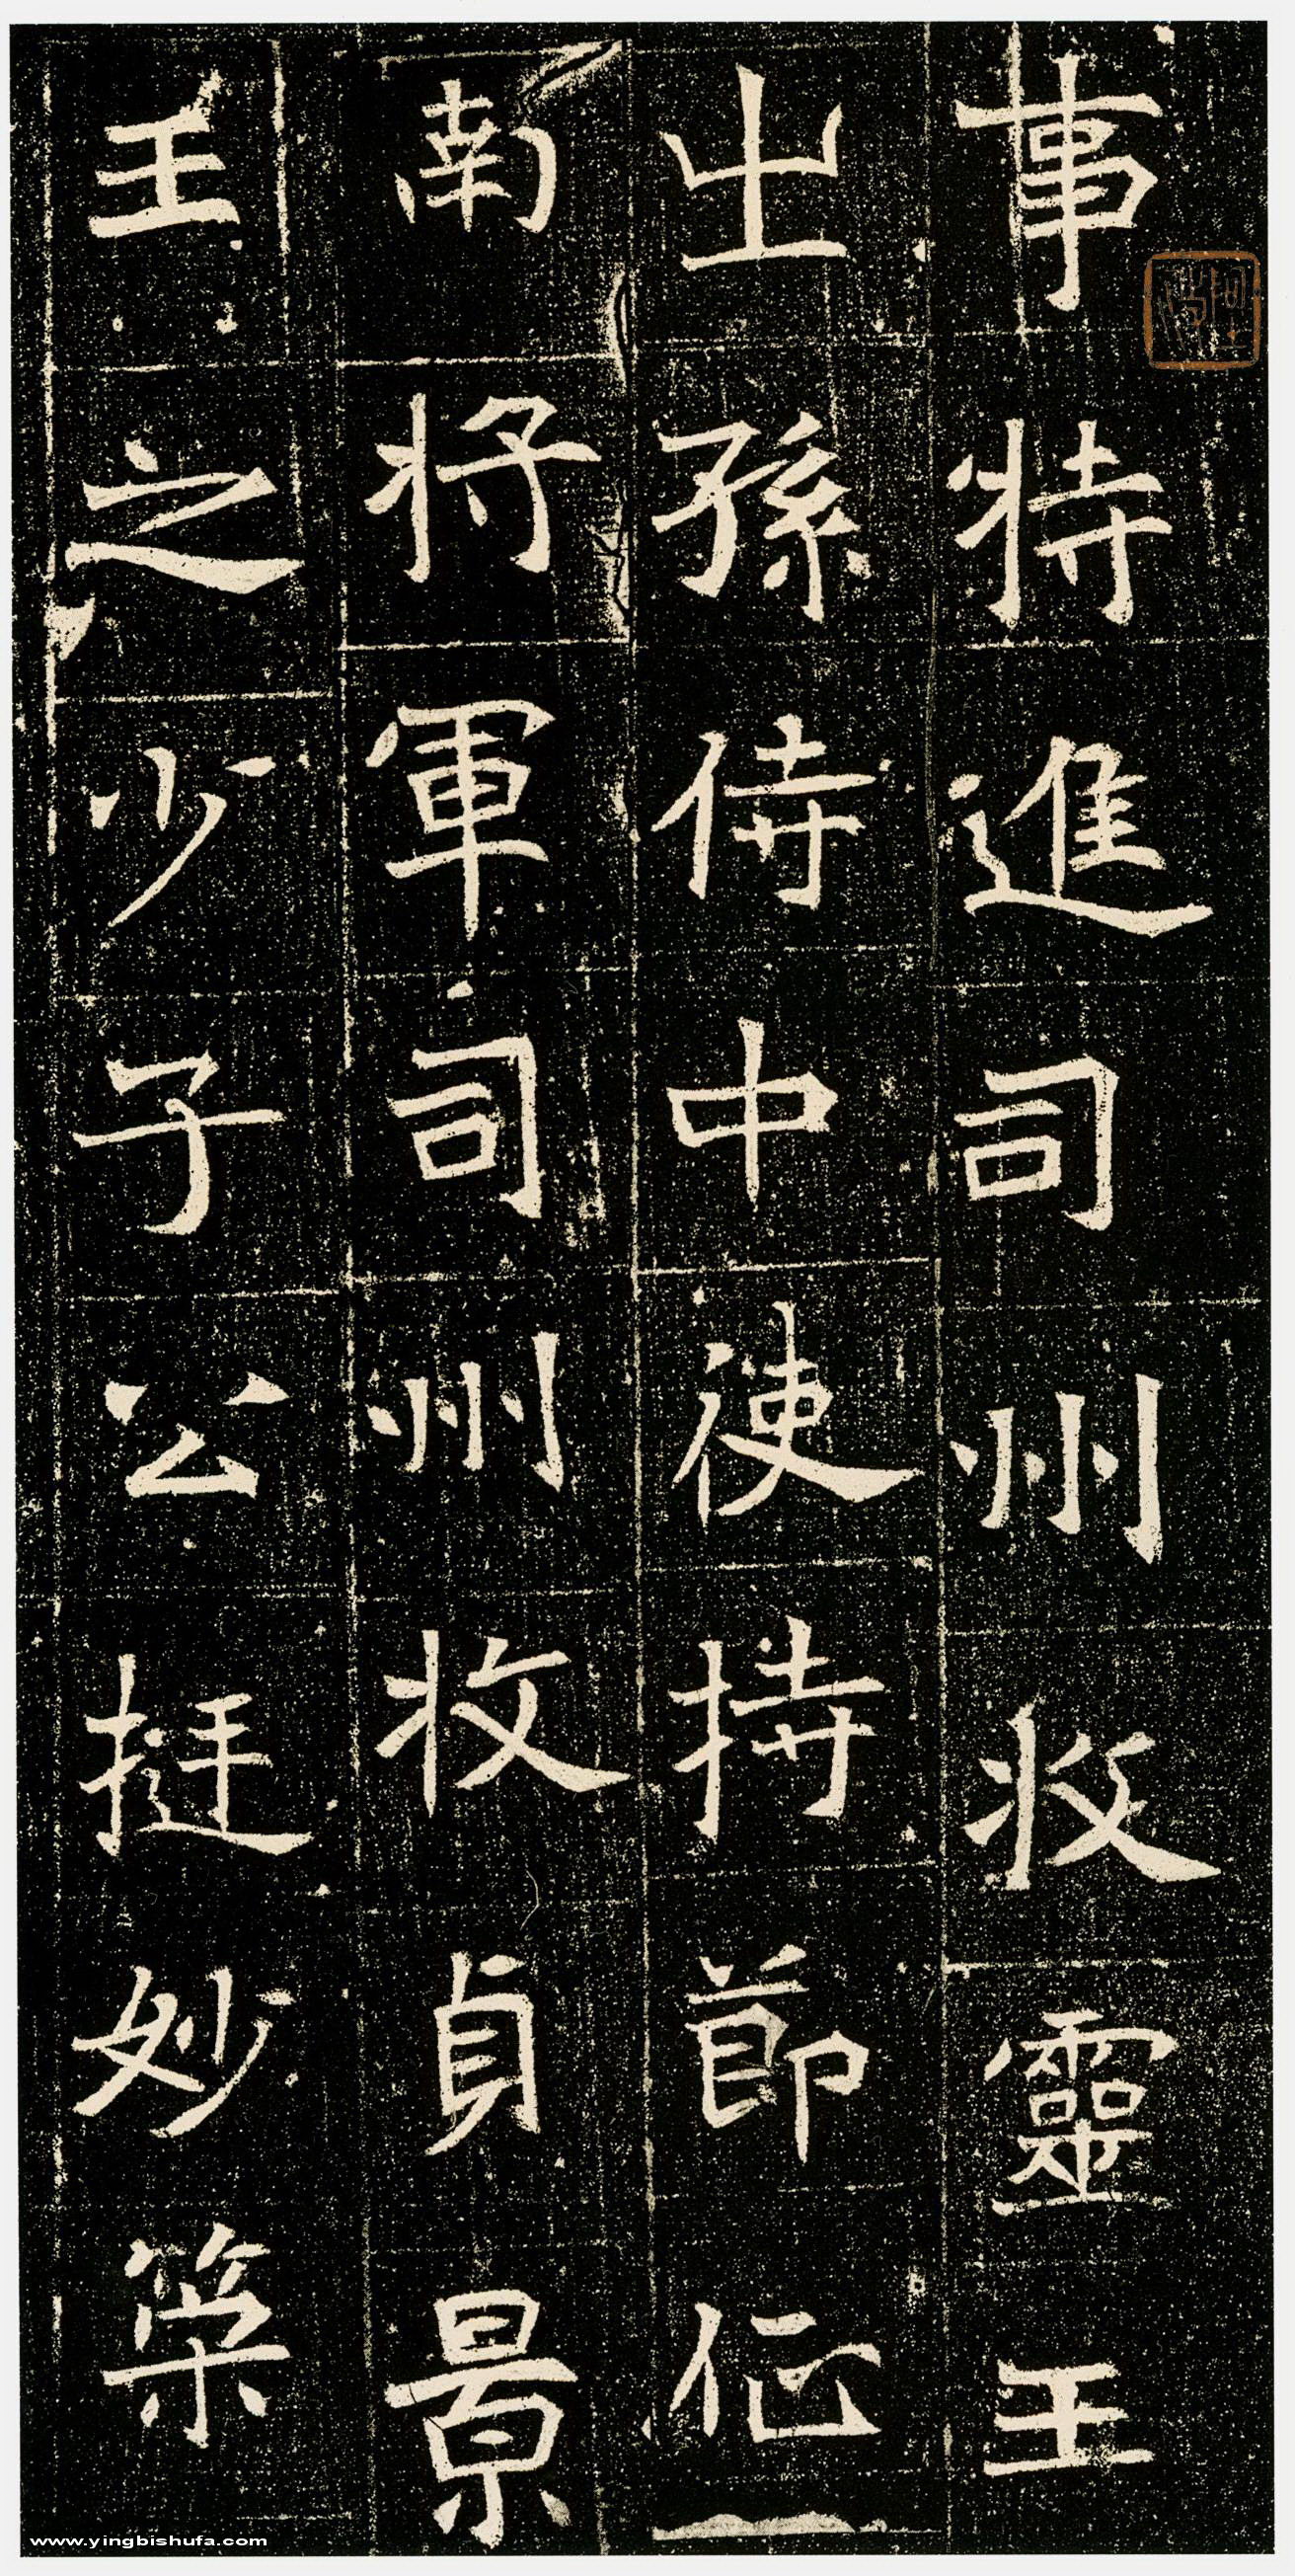 事特進司州牧靈王
之孫侍中使持節征
南將軍司州牧貞景
王之少子公挺妙築
www.yingbishufa.com